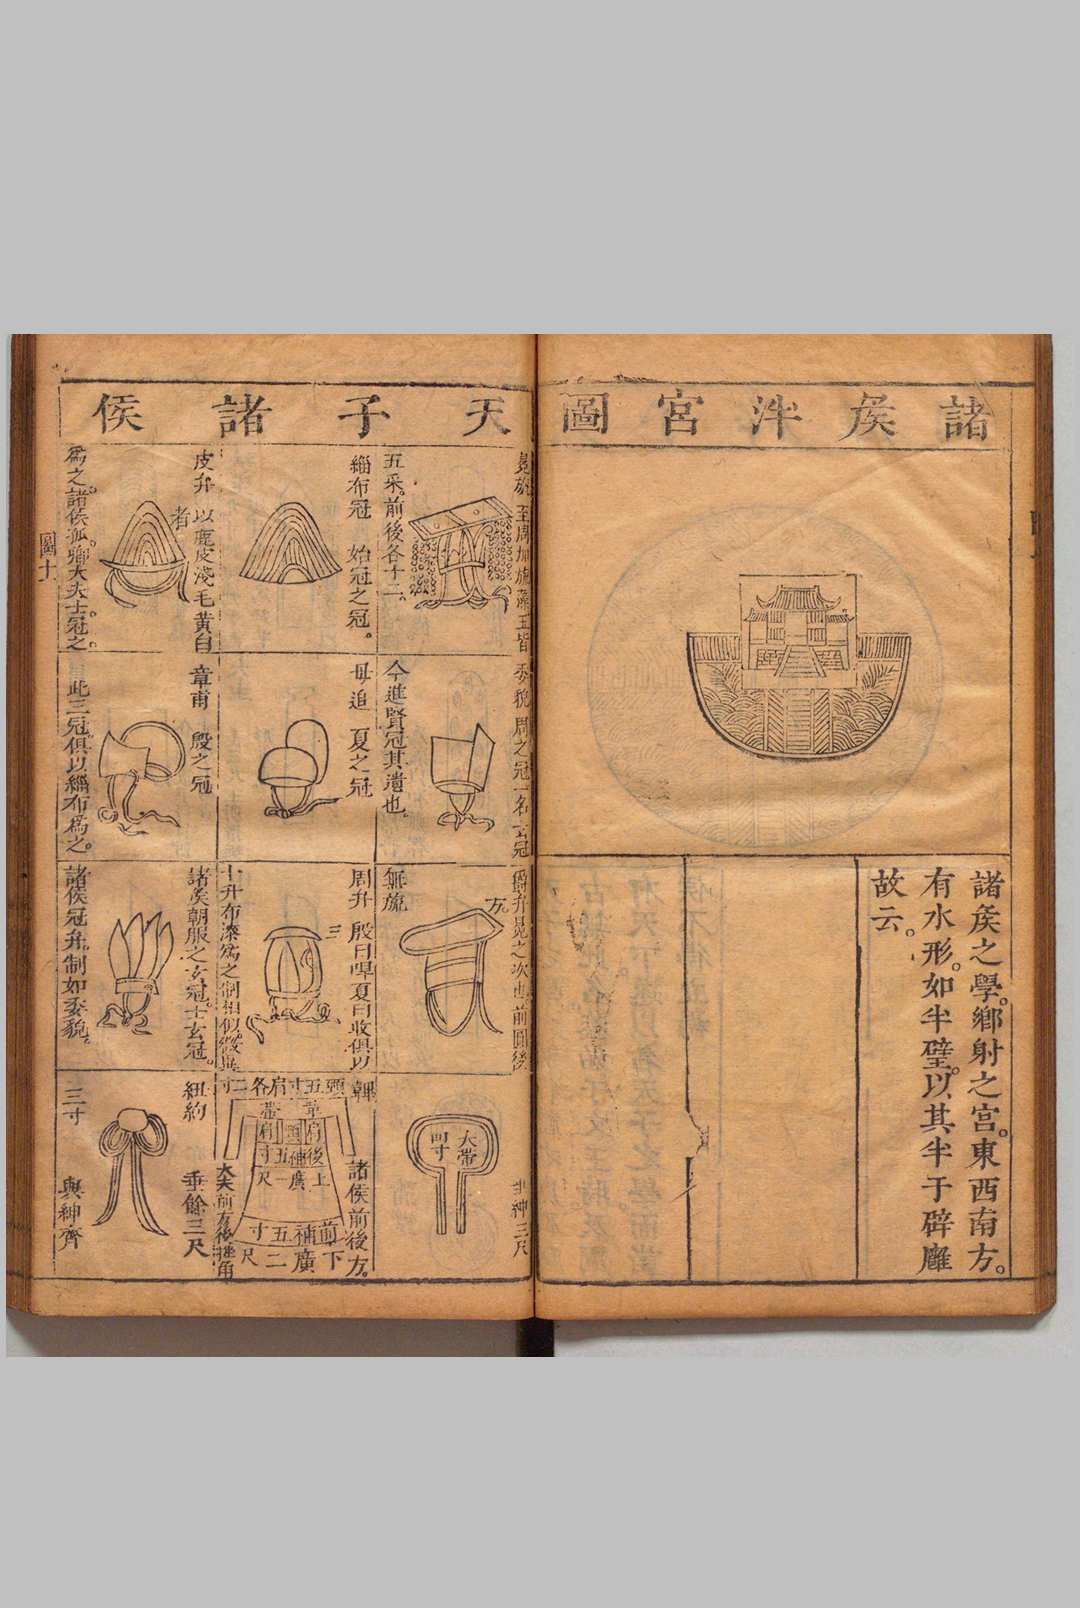 諸矦泮宮圖
諸矦之學。鄉射之宮。東西南方。
有水形。如半璧。以其半于辟廱
故云。
天子諸侯
冕旒 至周加旒藻玉皆
五采。前後各十二。
緇布冠 始冠之冠。
皮弁 以鹿皮淺毛黃白
者
爲之。諸侯孤卿大夫士。冠之。
委貌 周之冠一名玄冠
今進賢冠其遺也。
毋追 夏之冠
章甫 殷之冠
此三冠。俱以緇布爲之。
爵弁冕之次也前圓後
方
無旒
周弁 殷曰冔夏曰收俱以
三
十升布漆爲之制相似微異
諸矦朝服之玄冠。士玄冠。
諸侯冠弁。制如委貌。
紳三尺
大帶
四寸
韠
頭五寸肩各二寸
諸侯前後方。
上廣一尺
下廣二尺
前
後
大夫前方後挫角
紐約
垂餘三尺
三寸
與紳齊
圖十